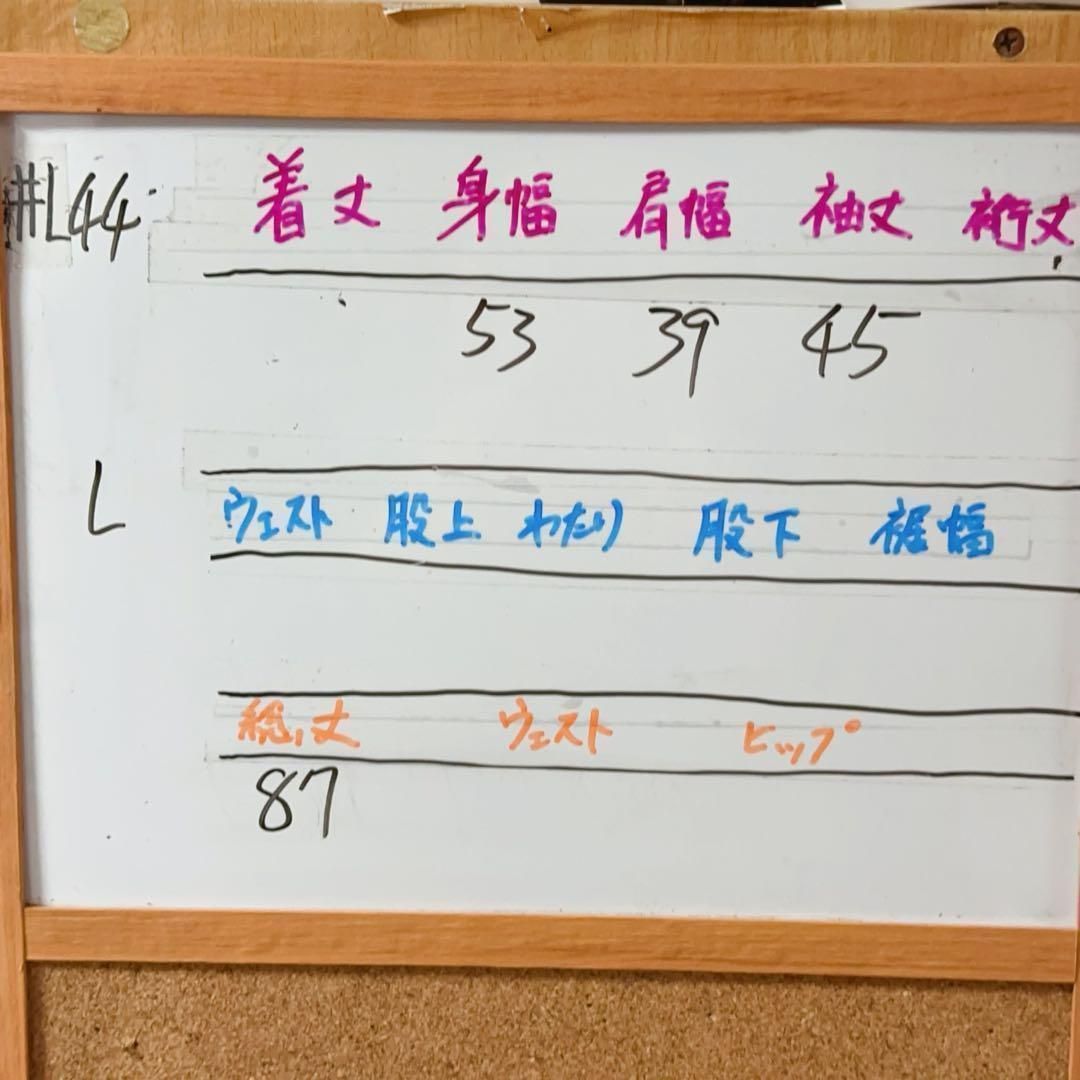 #L44 着丈 身幅 肩幅 袖丈 裄丈
53 39 45
L ウェスト 股上 わたり 股下 裾幅
総丈 ウェスト ヒップ
87